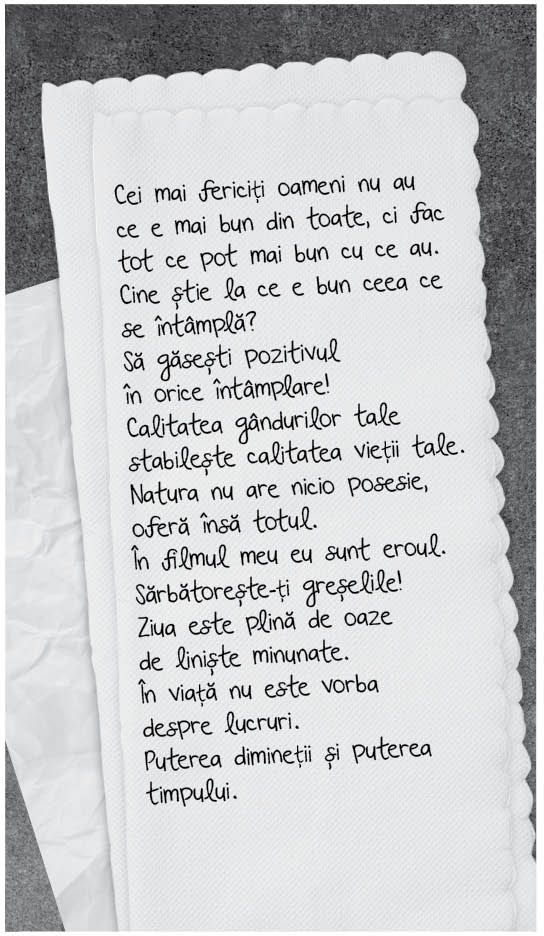 Cei mai fericiți oameni nu au
ce e mai bun din toate, ci fac
tot ce pot mai bun cu ce au.
Cine știe la ce e bun ceea ce
se întâmplă?
Să găsești pozitivul
în orice întâmplare!
Calitatea gândurilor tale
stabilește calitatea vieții tale.
Natura nu are nicio posesie,
oferă însă totul.
În filmul meu eu sunt eroul.
Sărbătorește-ți greșelile!
Ziua este plină de oaze
de liniște minunate.
În viață nu este vorba
despre lucruri.
Puterea dimineții și puterea
timpului.